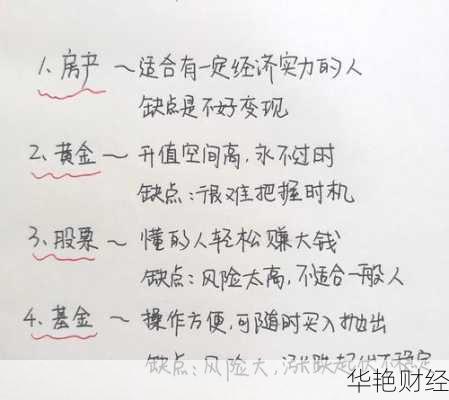 1、房产～适合有一定经济实力的人
缺点是不好变现
2、黄金～升值空间高,永不过时
缺点:很难把握时机
3、股票～懂的人轻松赚大钱
缺点:风险太高,不适合一般人
4、基金～操作方便,可随时买入抛出
缺点:风险大,涨跌起伏不稳定
华艳财经